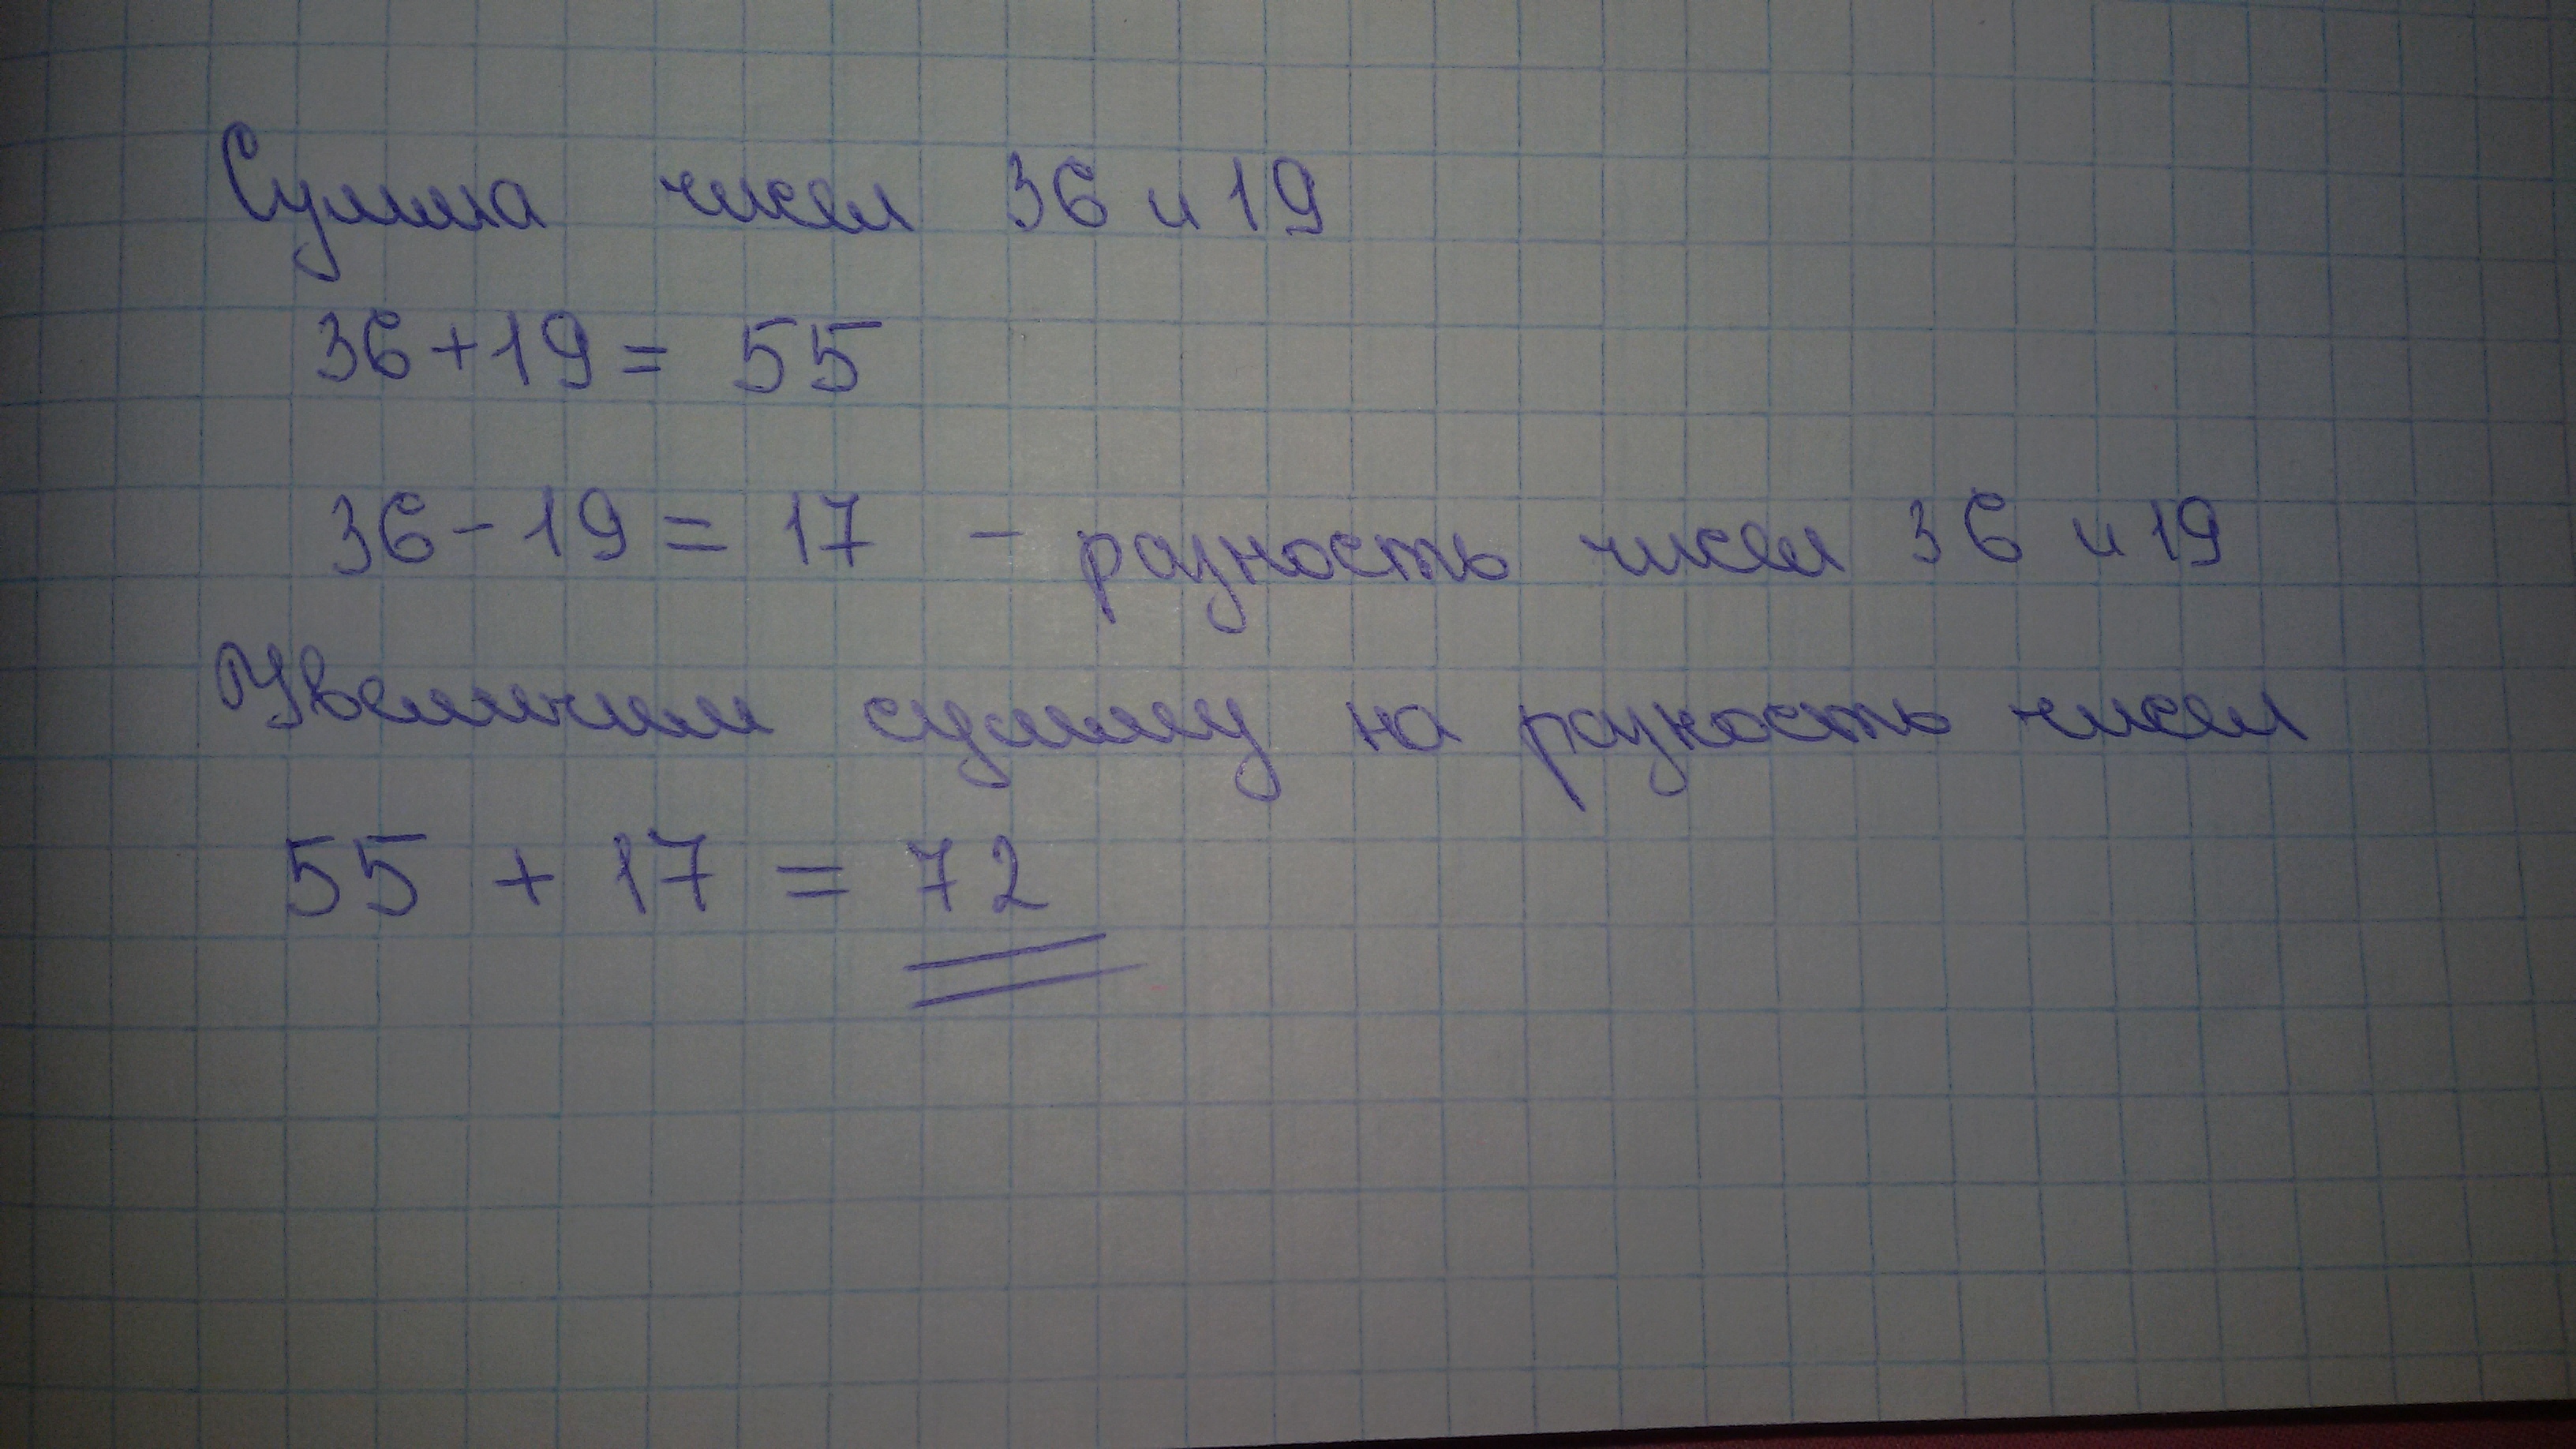 Сумма чисел 36 и 19
36+19= 55
36-19= 17 - разность чисел 36 и 19
Увеличим сумму на разность чисел
55 + 17 = 72